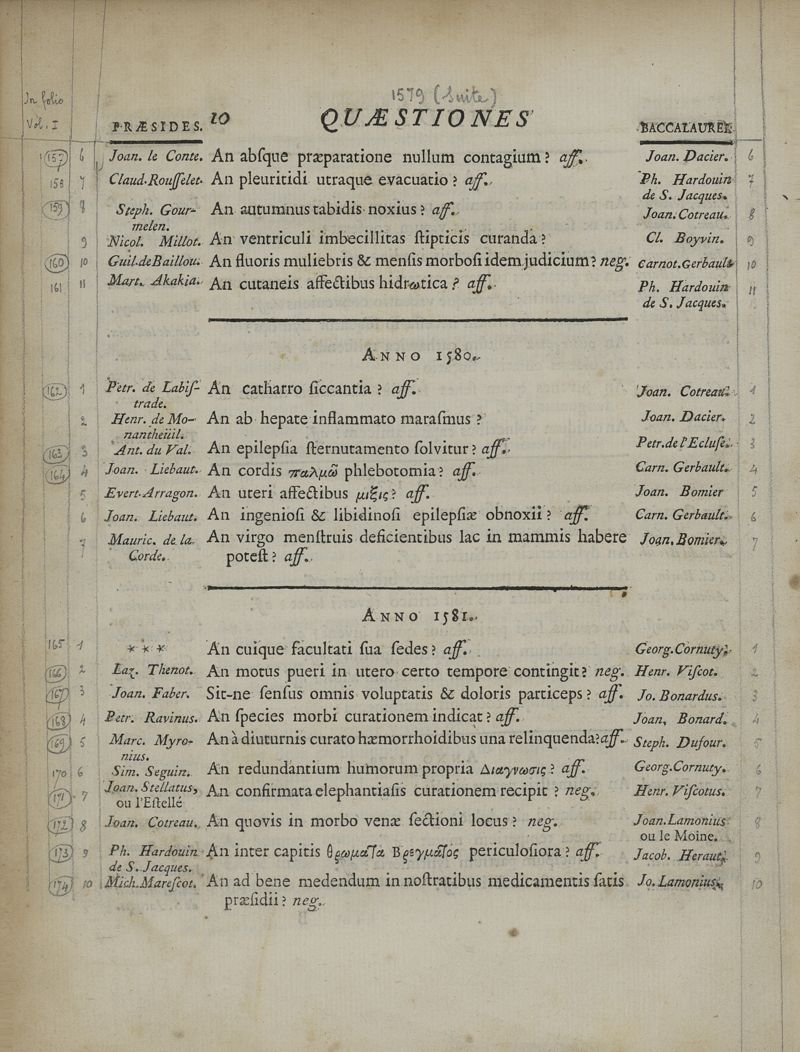 1579 (Suite)
In folio
Vol. I
PRÆSIDES. 10 QUÆSTIONES BACCALAUREI.
157 6 Joan. le Conte. An abſque præparatione nullum contagium? aff. Joan. Dacier. 6
158 7 Claud. Rouſſelet. An pleuritidi utraque evacuatio? aff. Ph. Hardouin 7
de S. Jacques.
159 8 Steph. Gour- An autumnus tabidis noxius? aff. Joan. Cotreau. 8
melen.
9 Nicol. Millot. An ventriculi imbecillitas ſtipticis curanda? Cl. Boyvin. 9
160 10 Guil. de Baillou. An fluoris muliebris & menſis morboſi idem judicium? neg. Carnot. Gerbault 10
161 11 Mart. Akakia. An cutaneis affectibus hidrωtica? aff. Ph. Hardouin 11
de S. Jacques.
ANNO 1580.
162 1 Petr. de Labiſ- An catharro ſiccantia? aff. Joan. Cotreau. 1
trade.
2 Henr. de Mo- An ab hepate inflammato maraſmus? Joan. Dacier. 2
nantheüil.
163 3 Ant. du Val. An epilepſia ſternutamento ſolvitur? aff. Petr. de l'Ecluſe. 3
164 4 Joan. Liebaut. An cordis παλμῶ phlebotomia? aff. Carn. Gerbault. 4
5 Evert. Arragon. An uteri affectibus μιξις? aff. Joan. Bomier 5
6 Joan. Liebaut. An ingenioſi & libidinoſi epilepſiæ obnoxii? aff. Carn. Gerbault. 6
7 Mauric. de la An virgo menſtruis deficientibus lac in mammis habere Joan. Bomier. 7
Corde. poteſt? aff.
ANNO 1581.
165 1 * * * An cuique facultati ſua ſedes? aff. Georg. Cornuty. 1
166 2 Laz. Thenot. An motus pueri in utero certo tempore contingit? neg. Henr. Viſcot. 2
167 3 Joan. Faber. Sit-ne ſenſus omnis voluptatis & doloris particeps? aff. Jo. Bonardus. 3
168 4 Petr. Ravinus. An ſpecies morbi curationem indicat? aff. Joan. Bonard. 4
169 5 Marc. Myro- An à diuturnis curato hæmorrhoidibus una relinquenda? aff. Steph. Dufour. 5
nius.
170 6 Sim. Seguin. An redundantium humorum propria Διαγνωσις? aff. Georg. Cornuty. 6
171 7 Joan. Stellatus, An confirmata elephantiaſis curationem recipit? neg. Henr. Viſcotus. 7
ou l'Eſtellé
172 8 Joan. Cotreau. An quovis in morbo venæ ſectioni locus? neg. Joan. Lamonius 8
ou le Moine.
173 9 Ph. Hardouin An inter capitis θρωμαΐα Βρεγμαΐος periculoſiora? aff. Jacob. Heraut. 9
de S. Jacques.
174 10 Mich. Mareſcot. An ad bene medendum in noſtratibus medicamentis ſatis Jo. Lamonius. 10
præſidii? neg.